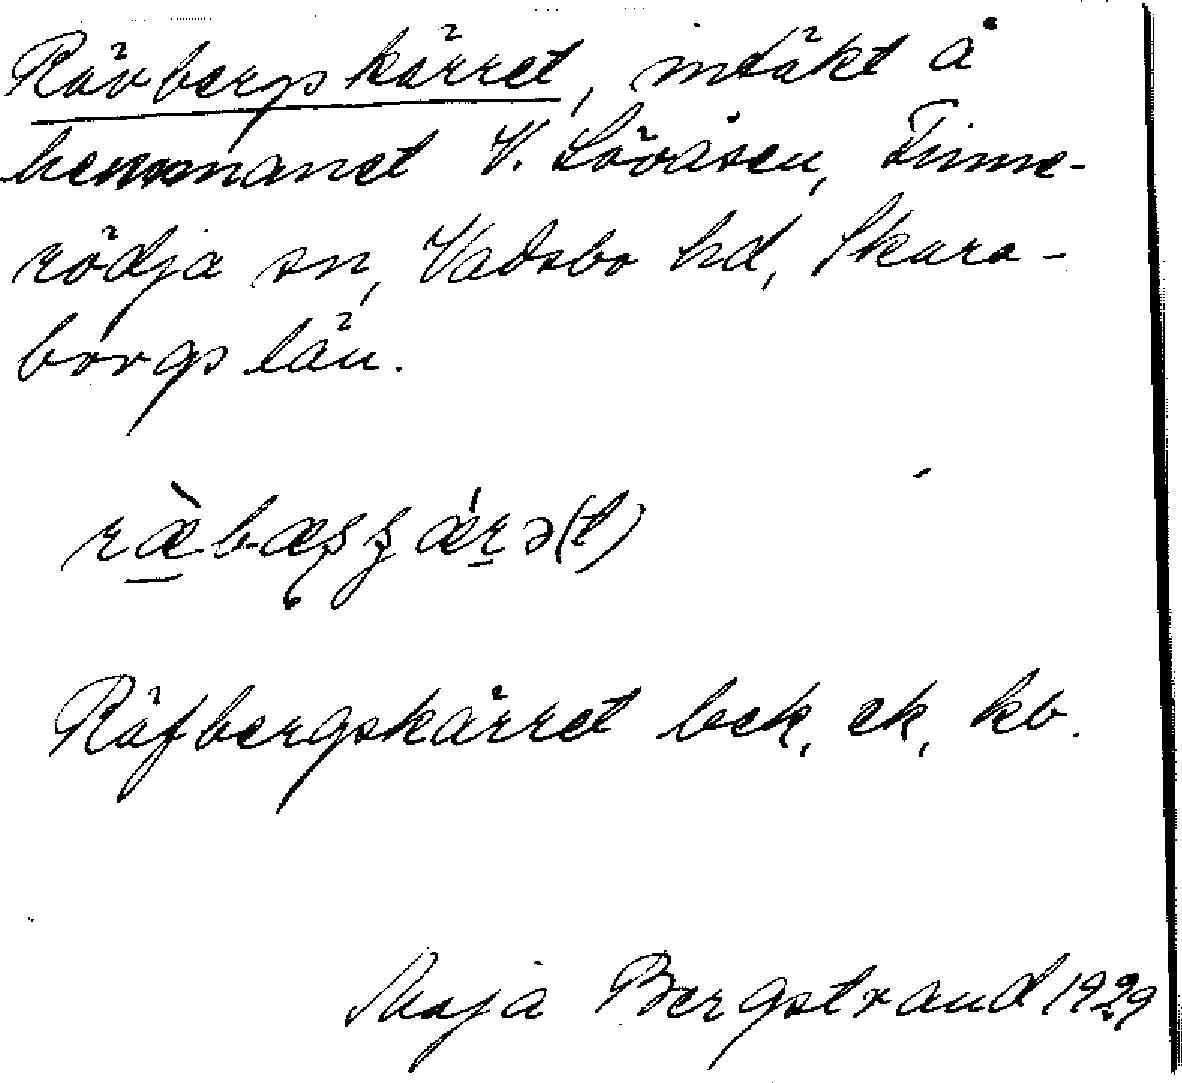 Rävbergskärret, intäkt å
hemmanet V. Lövåsen, Finne-
rödja sn, Vadsbo hd, Skara-
borgs län.
Räfbergskärret bek, ek, kb.
Maja Bergstrand 1929